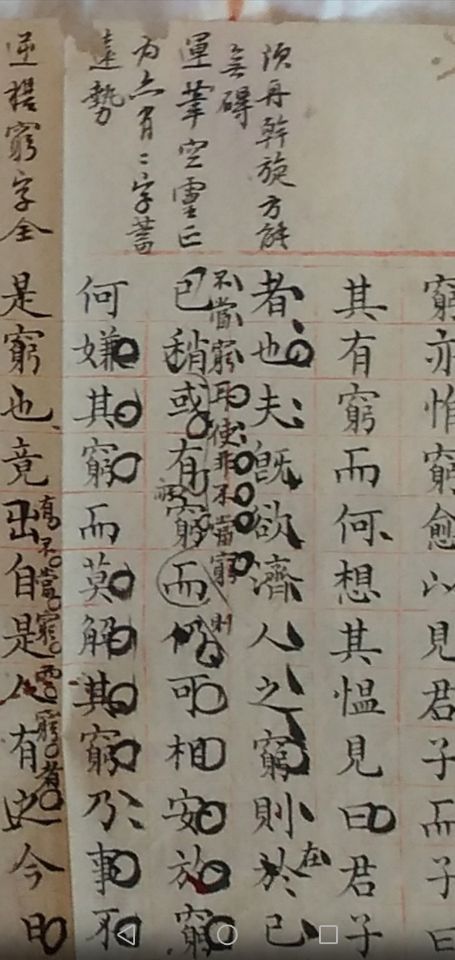 窮亦惟窮愈以見君子而子曰
其有窮而何想其愠見曰君子
者也夫既欲濟人之窮則於己
在
不當窮耳使非不當窮
則
已稍或有窮而何可相安於窮
何嫌其窮而莫解其窮乃事不
是窮也竟出自是人有之今日
須再斡旋方能
無碍
運筆空靈正
為六有二字蓄
遠勢
逆摄窮字全